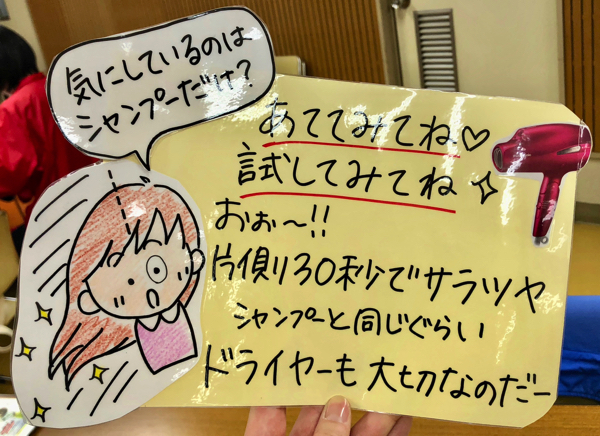 気にしているのは
シャンプーだけ?
あててみてね♡
試してみてね
おぉ〜!!
片側30秒でサラツヤ
シャンプーと同じぐらい
ドライヤーも大切なのだー